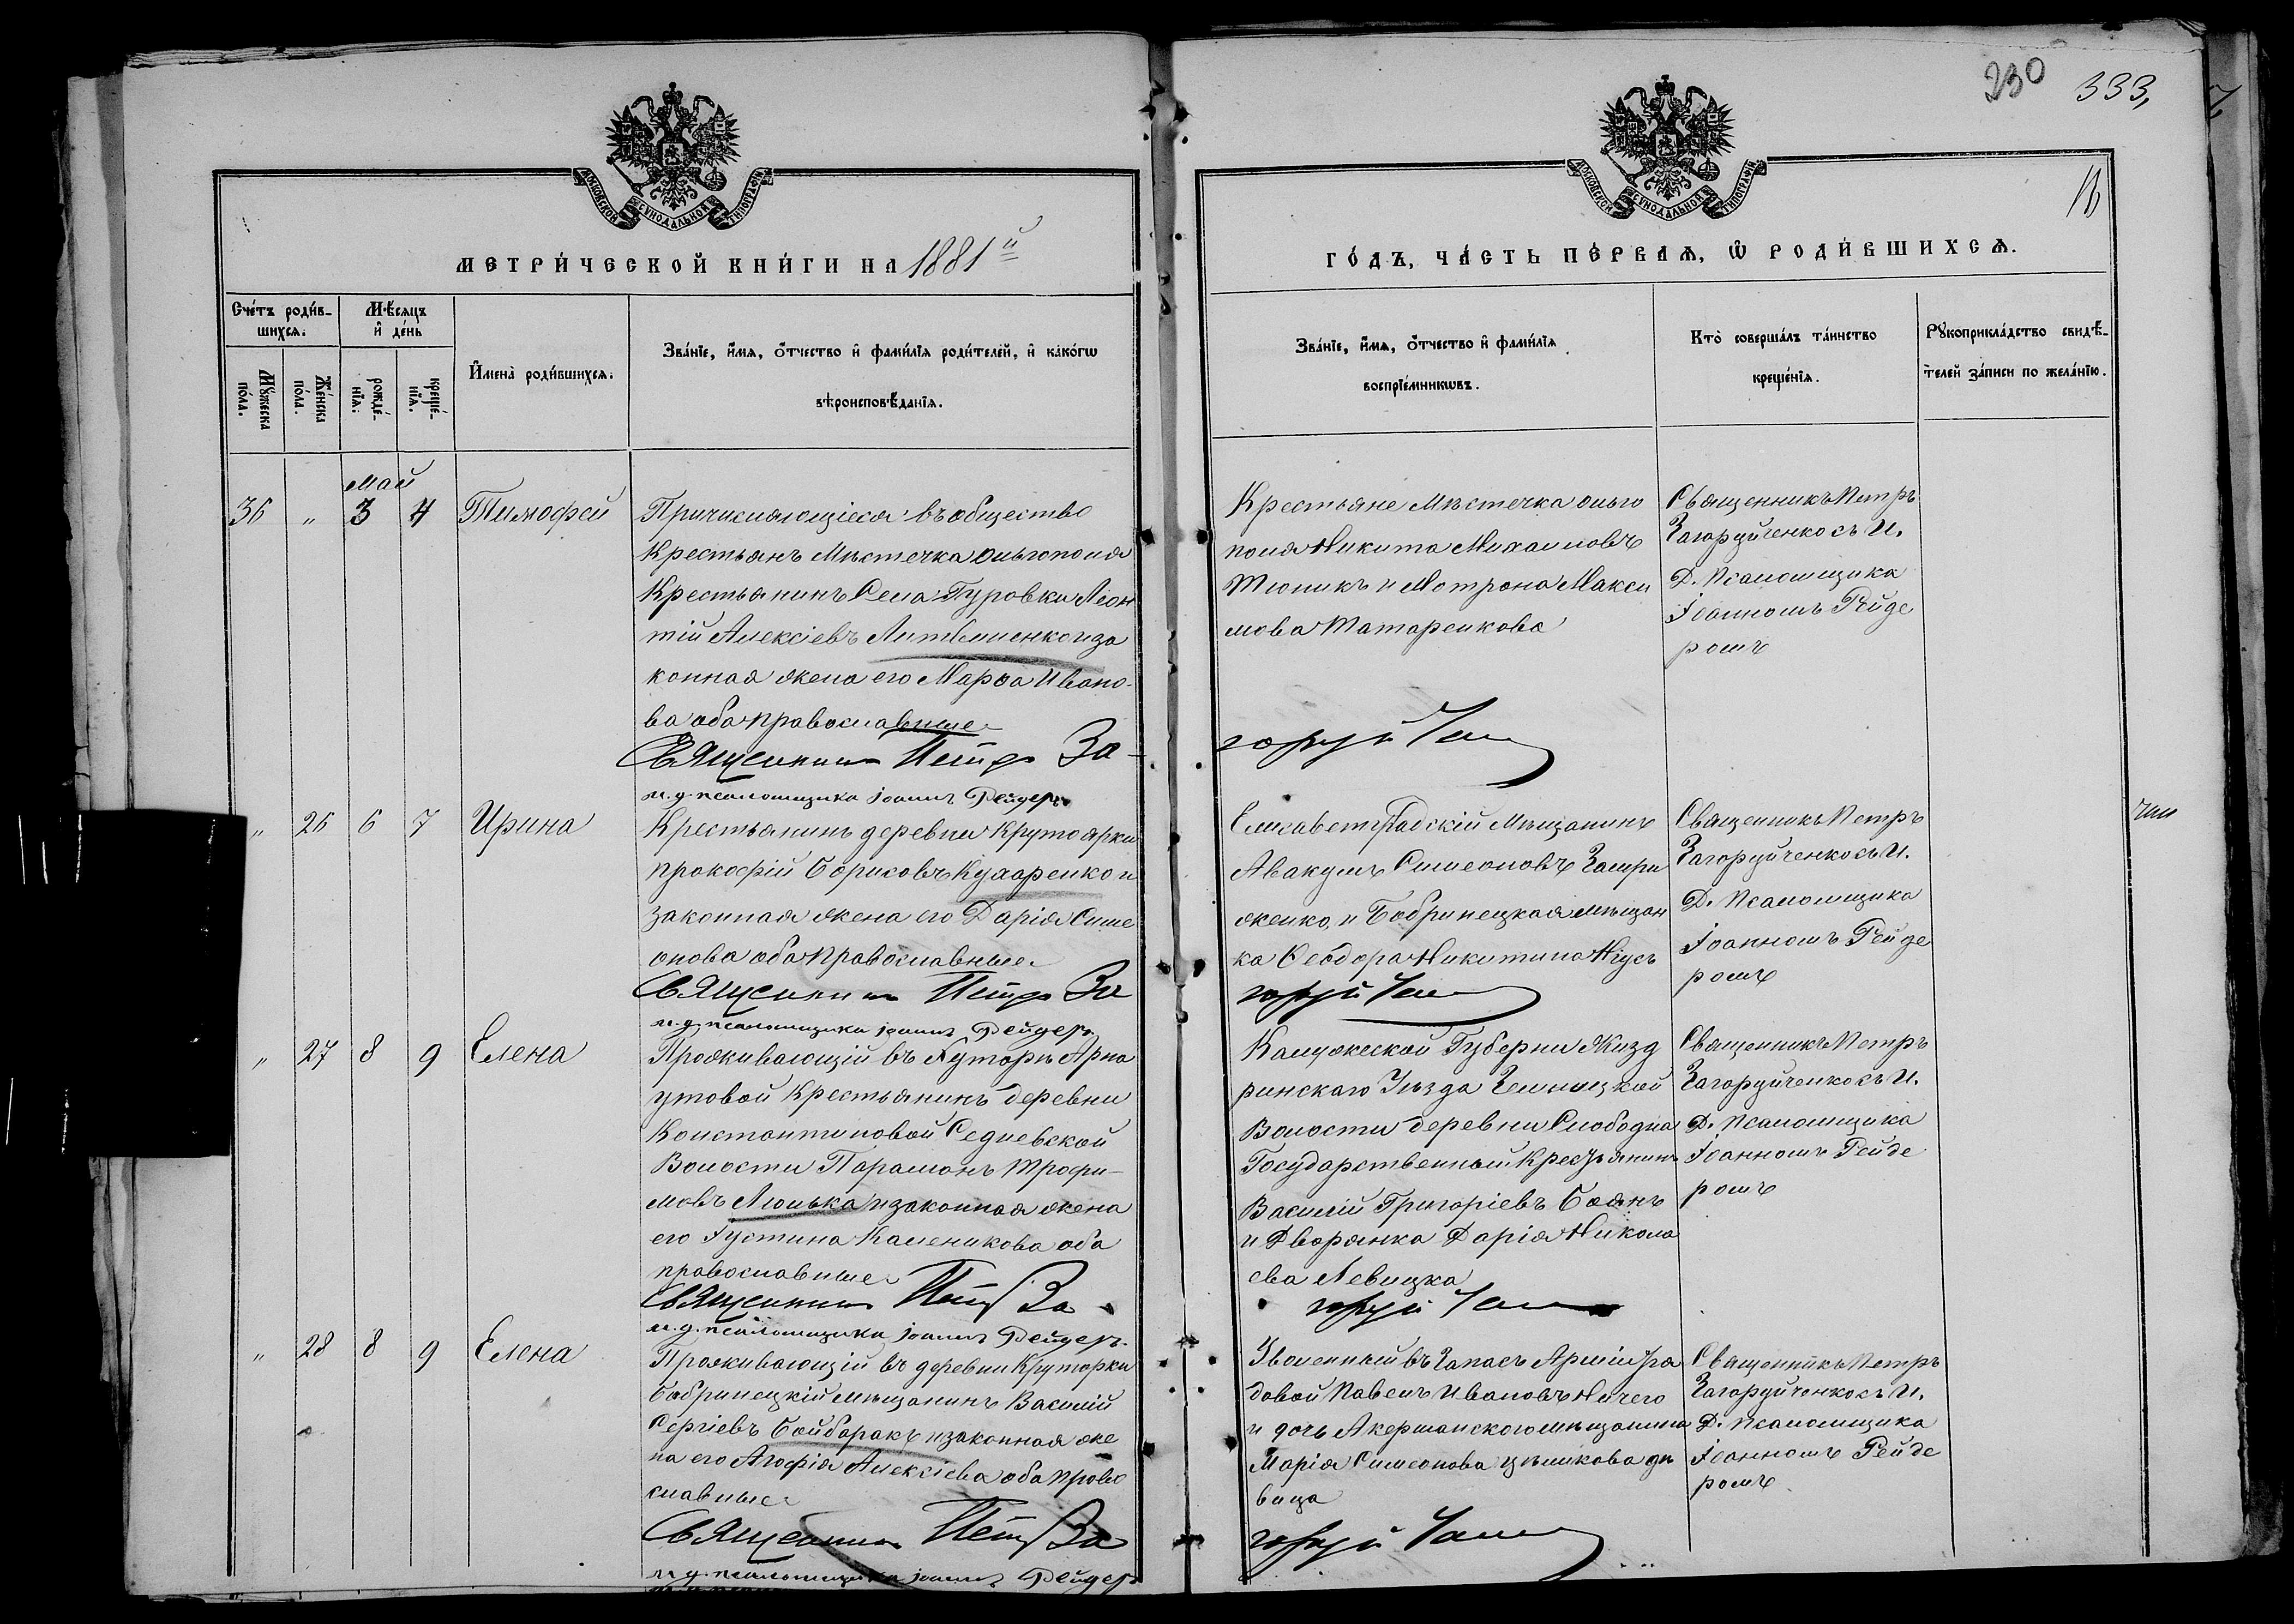 230 333,
МОСКОВСКОЙ СѴНОДАЛЬНОЙ ТИПОГРАФІИ
МОСКОВСКОЙ СѴНОДАЛЬНОЙ ТИПОГРАФІИ
МЕТРИ́ЧЕСКОЙ КНИ́ГИ НА 1881й
ГО́ДЪ, ЧА́СТЬ ПЕ́РВАѦ, Ѡ РОДИ́ВШИХСѦ.
Сче́тъ роди́в-
шихсѧ.
Мꙋ́жеска
по́ла.
Же́нска
по́ла.
Мѣ́сѧцъ
и҆ де́нь
рожде́-
нїѧ.
креще́-
нїѧ.
И҆мена̀ роди́вшихсѧ.
Зва́нїе, и҆́мѧ, о҆́тчество и҆ фами́лїѧ роди́телей, и҆ како́гѡ
вѣроисповѣ́данїѧ.
Зва́нїе, и҆́мѧ, о҆́тчество и҆ фами́лїѧ
воспрїе́мникѡвъ.
Кто̀ соверша́лъ та́инство
креще́нїѧ.
Рꙋкоприкла́дство свидѣ́-
телей за́писи по жела́нїю.
май
36 " 3 4 Тимофей
Причисляющіеся въ общество
Крестьянъ Мѣстечка Ольгополя
Крестьянинъ Села Гуровки Леон
тій Алексіевъ Литвиненко и за
конная жена его Марѳа Ивано-
ва оба православные
Священникъ Петръ За-
и.д. псаломщика Іоаннъ Рейдеръ
Крестьяне Мѣстечка Ольго
поля Никита Михаиловъ
Тюпикъ и Мотрона Макси
мова Татаренкова
горуйченко
Священникъ Петръ
Загоруйченко съ И.
Д. Псаломщика
Іоанномъ Рейде
ромъ
" 26 6 7 Ирина
Крестьянинъ деревни Крутоярки
Прокофій Борисовъ Кухаренко и
законная жена его Дарія Симе
онова оба православные
Священникъ Петръ За
и.д. псаломщика Іоаннъ Рейдеръ
Елисаветградскій Мѣщанинъ
Авакумъ Симеоновъ Замри
женко, и Бобринецкая мѣщан
ка Ѳеодора Никитина Гусь
горуйченко
Священникъ Петръ
Загоруйченко съ И.
Д. Псаломщика
Іоанномъ Рейде
ромъ
" 27 8 9 Елена
Проживающій въ Хуторѣ Арна
утовой Крестьянинъ деревни
Константиновой Седневской
Волости Парамонъ Трофи-
мовъ Люлька и законная жена
его Іустина Каленикова оба
православные
Священникъ Петръ За
и.д. псаломщика Іоаннъ Рейдеръ
Калужской Губерніи Жизд
ринскаго Уѣзда
Волости деревни Слободка
Государственный Крестьянинъ
Василій Григоріевъ Боянъ
и Дворянка Дарія Никола
ева Левицка
горуйченко
Священникъ Петръ
Загоруйченко съ И.
Д. Псаломщика
Іоанномъ Рейде
ромъ
" 28 8 9 Елена
Проживающій въ деревни Крутоярки
Бобринецкій мѣщанинъ Василій
Сергіевъ Бойбаракъ и законная же
на его Агафія Алексіева оба право
славные
Священникъ Петръ За
и.д. псаломщика Іоаннъ Рейдеръ
Уволенный въ Запасъ Арміи ря
довой Павелъ Ивановъ Ничего
и дочь Акерманскаго мѣщанина
Марія Симеонова дѣ
вица
горуйченко
Священникъ Петръ
Загоруйченко съ И.
Д. Псаломщика
Іоанномъ Рейде
ромъ